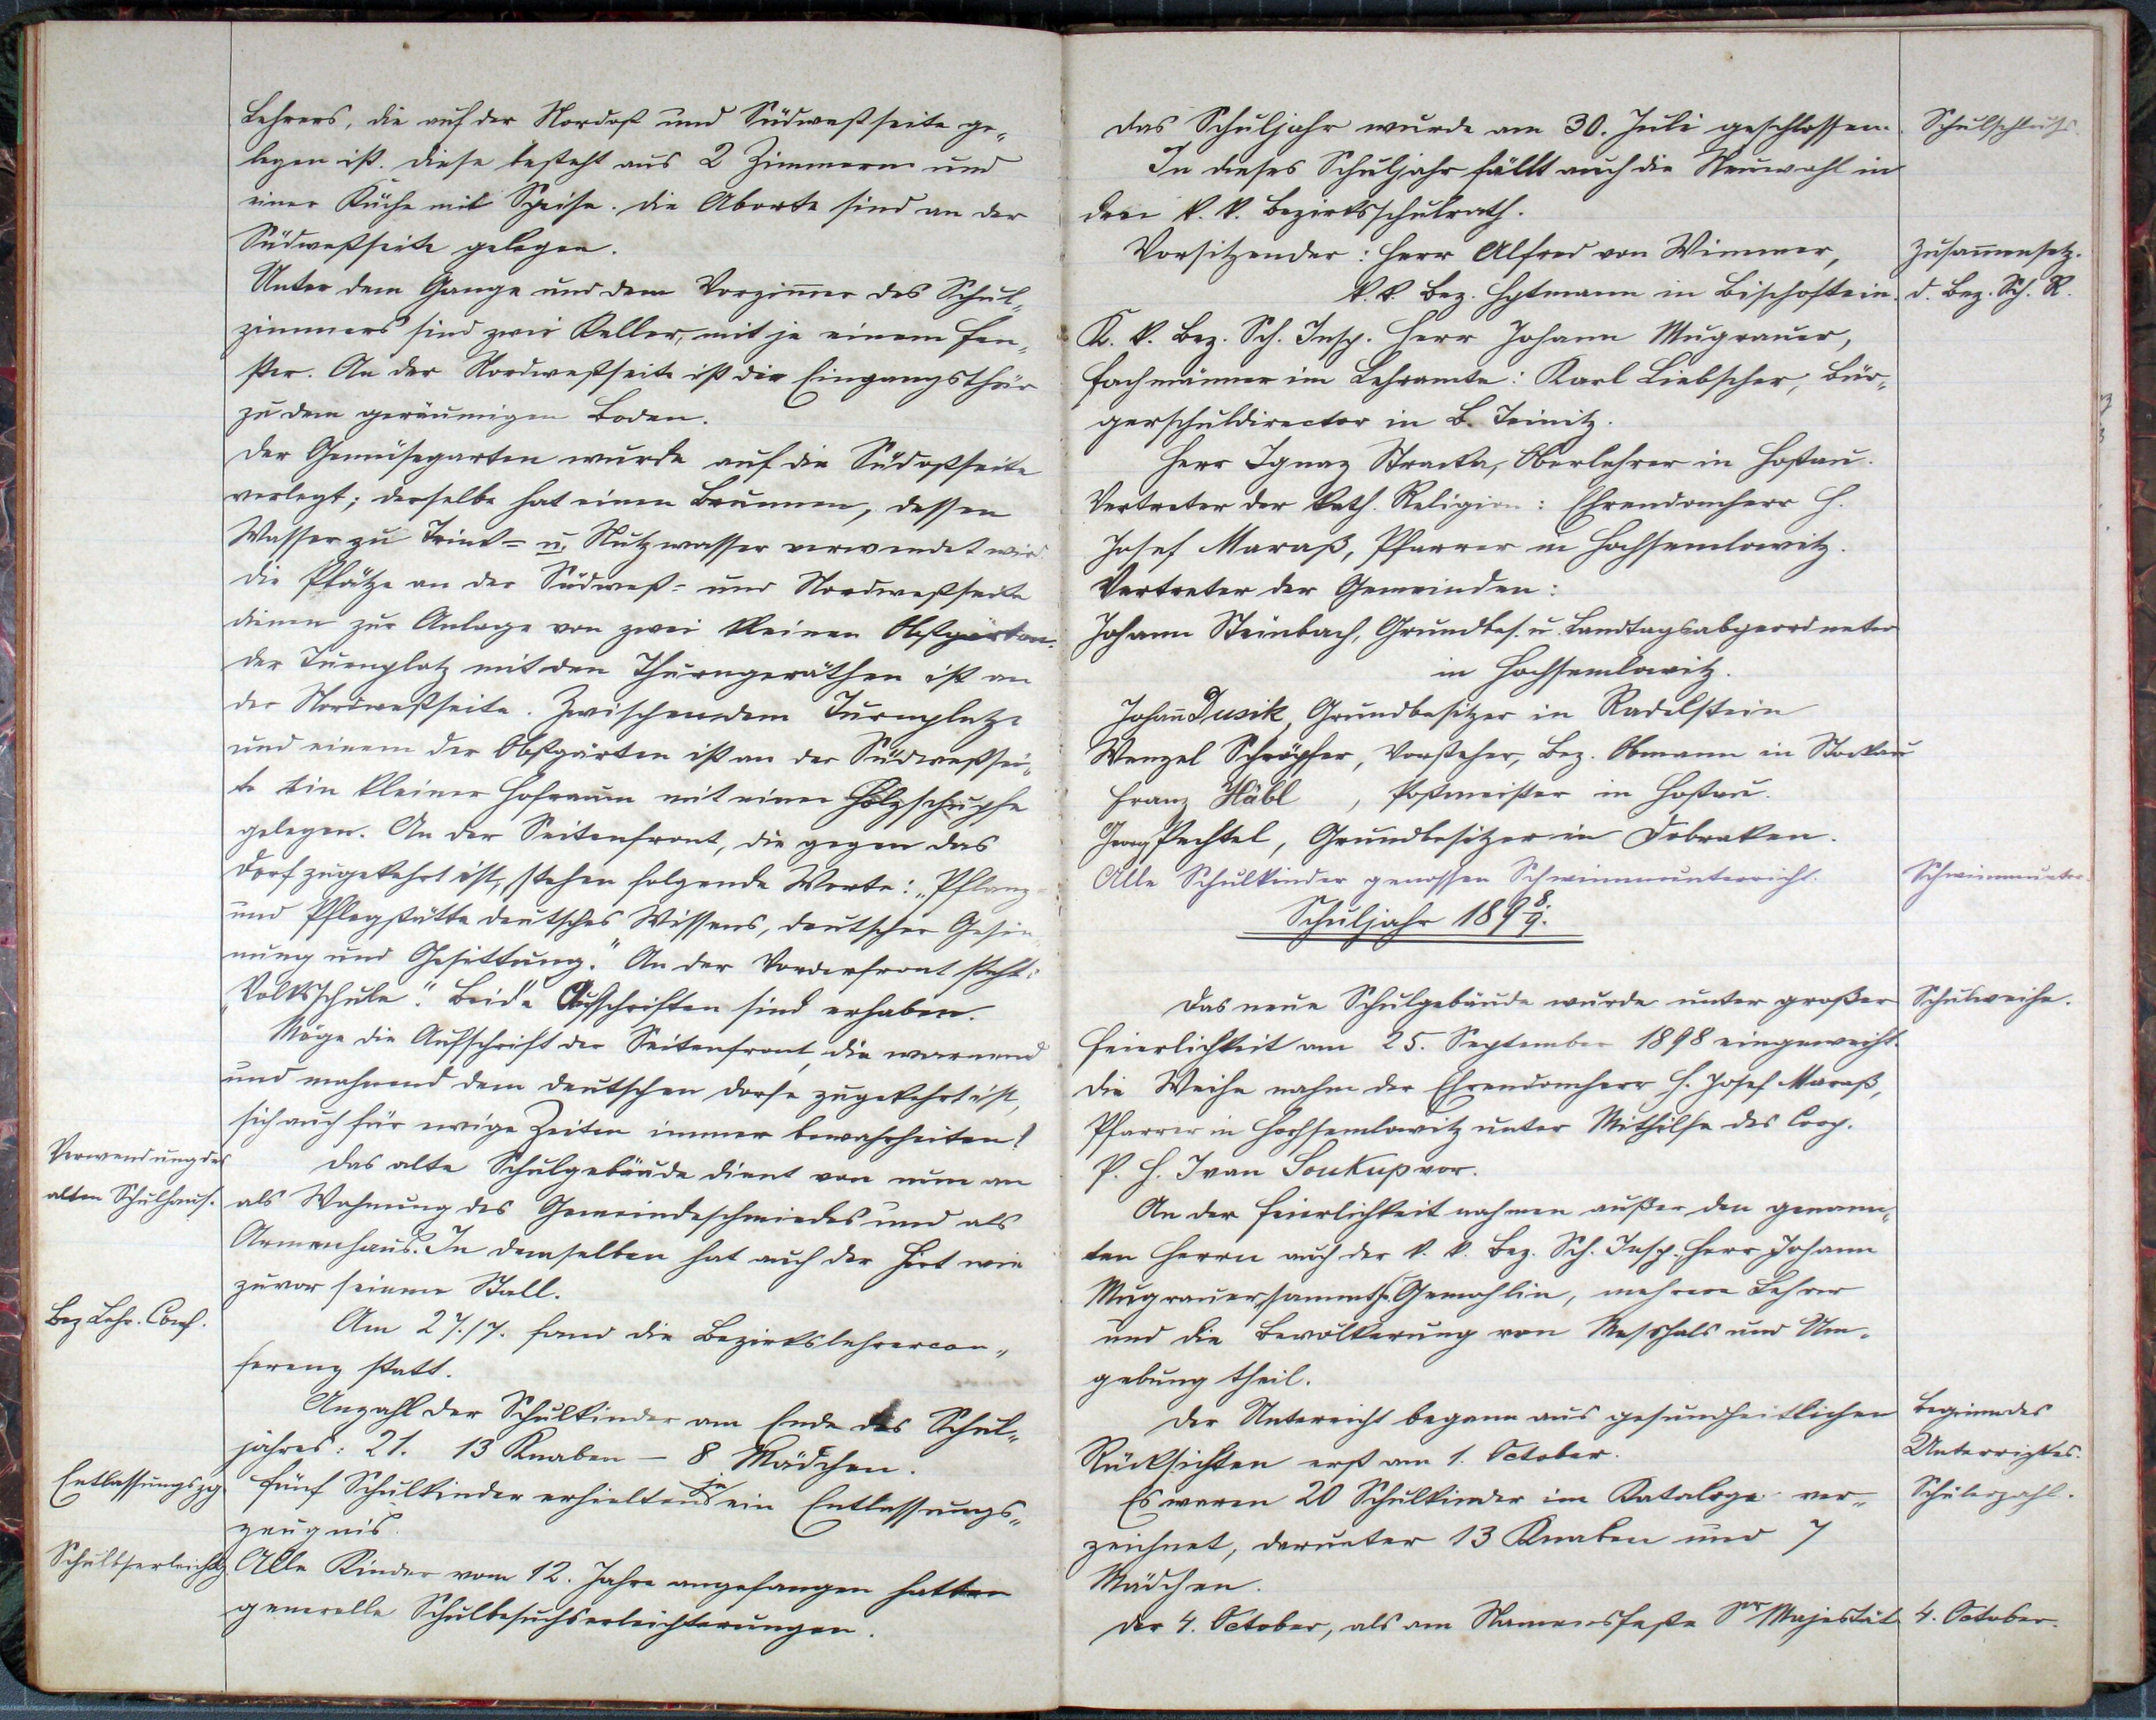 Lehrers, die auf der Nordost und Südwestseite ge„
legen ist. Diese besteht aus 2 Zimmern und
einer Küche mit Speise. Die Aborte sind an der
Südwestseite gelegen.
Unter dem Gange und dem Vorzim̄er des Schul„
zimmers sind zwei Keller, mit je einem Fen„
ster. An der Nordwestseite ist die Eingangsthür
zu dem geräumigen Boden.
Der Gemüsegarten wurde auf die Südostseite
verlegt; derselbe hat einen Brunnen, dessen
Wasser zu Trink- u. Nutzwasser verwendet wird.
Die Plätze an der Südwest- und Nordwestseite
dienen zur Anlage von zwei kleinen Obstgärten.
Der Turnplatz mit den Thurngeräthen ist an
der Nordwestseite. Zwischen dem Turnplatze
und einem der Obstgärten ist an der Südwestsei„
te ein kleiner Hofraum mit einer Holzschupfe
gelegen. An der Seitenfront, die gegen das
Dorf zugekehrt ist, stehen folgende Worte: „Pflanz-
und Pflegstätte deutsches Wissens, deutscher Gesin„
nung und Gesittung." An der Vorderfront steht:
„Volksschule". Beide Aufschriften sind erhaben.
Möge die Aufschrift der Seitenfront, die warnend
und mahnend dem deutschen Dorfe zugekehrt ist,
sich auch für ewige Zeiten immer bewahrheiten!
Verwendung des
alten Schulhaus.
Das alte Schulgebäude dient von nun an
als Wohnung des Gemeindeschmiedes und als
Armenhaus. In demselben hat auch der Hirt wie
zuvor seinen Stall.
Bez Lehr. Conf.
Am 27./7. fand die Bezirkslehrercon„
ferenz statt.
Anzahl der Schulkinder am Ende des Schul„
jahres: 21. 13 Knaben – 8 Mädchen.
Entlassungszg.
Fünf Schulkinder erhielten je ein Entlassungs„
zeugnis.
Schulbserleichtg
Alle Kinder vom 12. Jahre angefangen hatten
generelle Schulbesuchserleichterungen.
Das Schuljahr wurde am 30. Juli geschlossen.
Schulschluss.
In dieses Schuljahr fällt auch die Neuwahl in
den k. k. Bezirksschulrath.
Vorsitzender: Herr Alfred von Wimmer,
k. k. Bez. Hptmann in Bischofteinitz.
Zusam̄ensetz.
d. Bez. Sch. R.
K. k. Bez. Sch. Insp. Herr Johann Mugrauer,
Fachmänner im Lehramte: Karl Liebscher, Bür„
gerschuldirector in B. Teinitz.
Herr Ignaz Stracka, Oberlehrer in Hostau.
Vertreter der kath. Religion: Ehrendomherr H.
Josef Maraß, Pfarrer in Hochsemlowitz.
Vertreter der Gemeinden:
Johann Steinbach, Grundbes. u. Landtagsabgeordneter
in Hochsemlowitz.
Johan̄ Dusik, Grundbesitzer in Radelstein
Wenzel Schröpfer, Vorsteher, Bez. Obmann in Stockau
Franz Häbl, Postmeister in Hostau.
Georg Pechtel, Grundbesitzer in Dobraken.
Alle Schulkinder genossen Schwimmunterricht.
Schwimmunter.
Schuljahr 1898/9.
Das neue Schulgebäude wurde unter großer
Schulweihe.
Feierlichkeit am 25. September 1898 eingeweiht.
Die Weihe nahm der Ehrendomherr H. Josef Maraß,
Pfarrer in Hochsemlowitz unter Mithilfe des Coop.
P. H. Ivan Soukup vor.
An der Feierlichkeit nahmen außer den genann„
ten Herrn auch der k. k. Bez. Sch. Insp. Herr Johann
Mugrauer sammt Gemahlin, mehrere Lehrer
und die Bevölkerung von Messhals und Um„
gebung theil.
Der Unterricht begann aus gesundheitlichen
Rücksichten erst am 1. October.
Beginn des
Unterrichtes.
Es waren 20 Schulkinder im Kataloge ver„
Schülerzahl.
zeichnet, darunter 13 Knaben und 7
Mädchen.
Der 4. October, als am Namensfeste Sr Majestät
4. October.